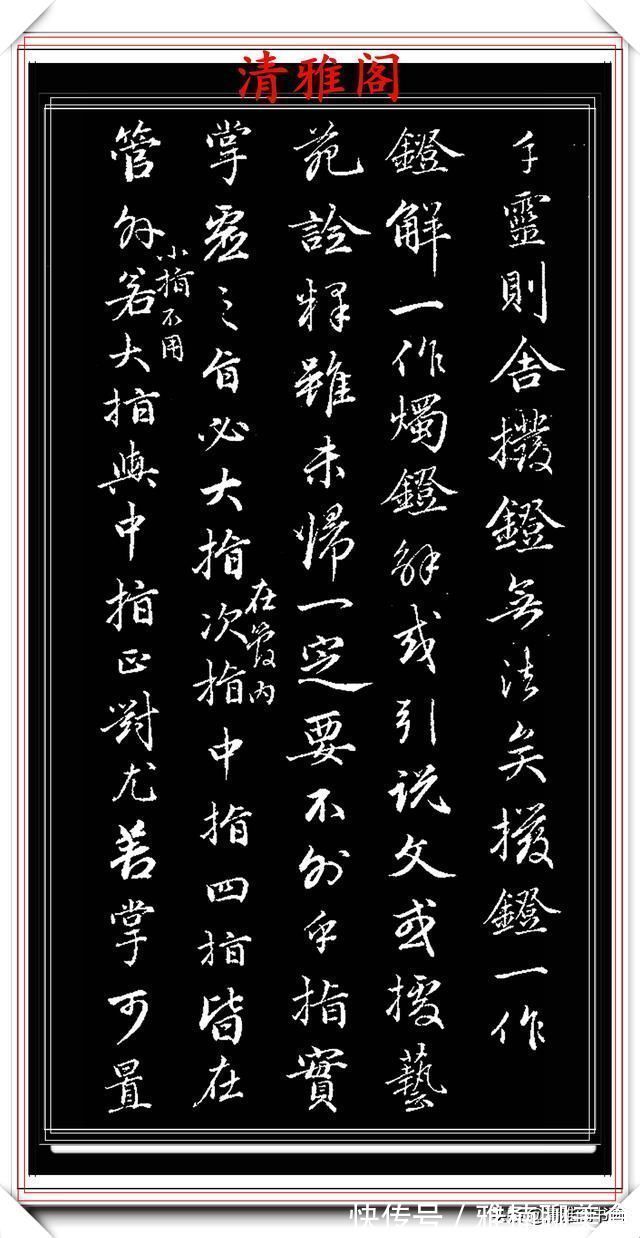 清雅阁
手靈則舍撥鐙無法矣撥鐙一作
鐙解一作燭鐙解或引说文或據藝
苑詮釋雖未歸一定要不外乎指實
掌虛之旨必大指次指中指四指皆在
在管内
管外若大指與中指正對尤善掌可置
小指不用
快传号 /